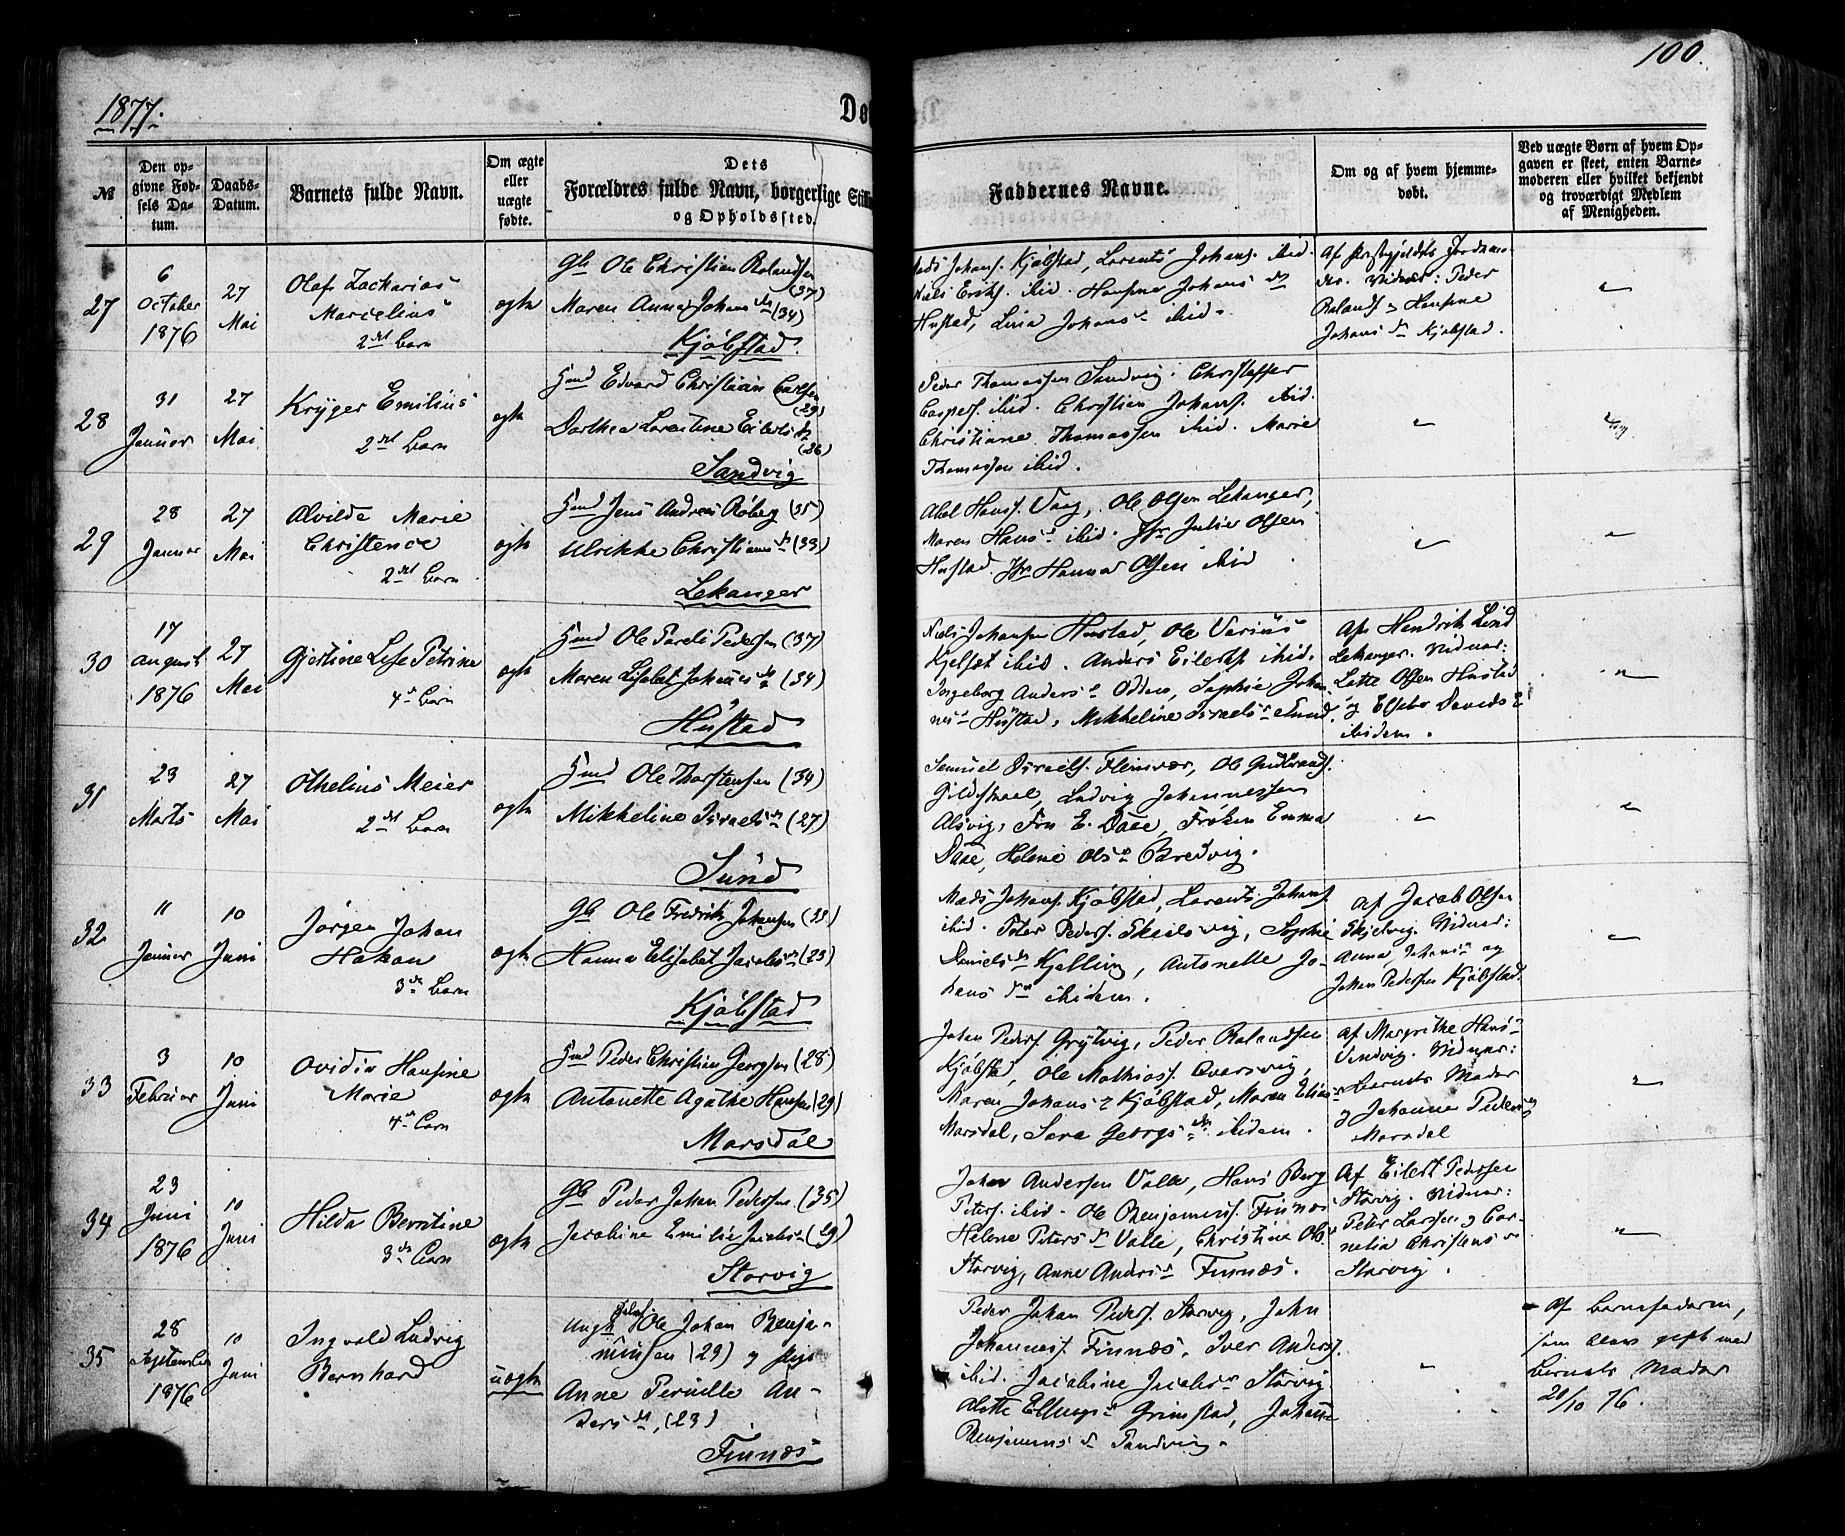 100.
1877.
Dø
№
Den op-
givne Fød-
sels Da-
tum.
Daabs-
Datum.
Barnets fulde Navn.
Om ægte
eller
uægte
fødte.
Dets
Forældres fulde Navn, borgerlige Stil
og Opholdssted.
Faddernes Navne.
Om og af hvem hjemme-
døbt.
Ved uægte Børn af hvem Op-
gaven er skeet, enten Barne-
moderen eller hvilket bekjendt
og troværdigt Medlem
af Menigheden.
27
6
October
1876
27
Mai
Olaf Zacharias
Marcelius
2det Barn
ægte
Gb Ole Christian Rolandsen
(37)
Maren Anna Johansdr (34)
Kjøbstad.
Mads Johans. Kjøbstad, Lorents Johans. ibid.
Niels Eriks. ibid. Hansine Johansdr
Hustad, Lina Johans ibid.
Af Præstegjeldets Jordemo-
der. Vidner: Peder
Rolands og Hansine
Johansdr Kjøbstad.
28
31
Januar
27
Mai
Krÿger Emilius
2det Barn
ægte
Hmd Edvard Christian Carlsen
(29)
Dorthea Lorentine Eilertsdr
(26)
Sandvig
Peder Thomassen Sandvig. Christoffer
Caspers. ibid. Christian Johans. ibid.
Christiane Thomassen ibid. Marie
Thomassen ibid.
29
28
Januar
27
Mai
Alvilde Marie
Christence
2det Barn
ægte
Hmd Jens Andreas Roberg (35)
Ulrikke Christiansdr (33)
Lekanger
Abel Hans. Vaag, Ole Olsen Lekanger,
Maren Hans ibid. Jfr Julie Olsen
Hustad. Jfr Hanna Olsen ibid
30
17
August
1876
27
Mai
Gjertine Lise Petrine
4de Barn
ægte
Hmd Ole Pareli Pedersen (37)
Maren Lisabet Johannesdr (34)
Hustad
Niels Johansen Hustad, Ole Verius
Kjelsæt ibid. Anders Eilerts ibid.
Ingeborg Anders Oddens, Sophie Johan-
nes Hustad, Mikkeline Israels Sund.
Af Hendrik Lind
Lekanger. Vidner:
Lette Olsen Hustad
og Elseba Davids
ibidem.
31
23
Marts
27
Mai
Othelius Meier
2det Barn
ægte
Hmd Ole Thorstensen (34)
Mikkeline Israelsdr (27)
Sund
Samuel Israels. Fleinvær, Ole Gulbrands.
Gildeskaal, Ludvig Johannessen
Alsvig, Fru E. Daae, Frøken Emma
Daae, Helene Ols Bredvig.
32
11
Januar
10
Juni
Jørgen Johan
Hakon
3de Barn
ægte
Gb Ole Fredrik Johansen (33)
Hanna Elisabet Jacobsdr (23)
Kjøbstad
Mads Johans. Kjøbstad, Lorents Johans.
ibid. Peter Peders. Skeilsvig, Sophie
Danielsdr Kjelling, Antonette Jo-
hansdr ibidem.
af Jacob Olsen
Skjelvig. Vidner:
Anna Johans og
Johan Pedersen Kjøbstad.
33
3
Februar
10
Juni
Ovidia Hansine
Marie
4de Barn
ægte
Hmd Peder Christian Georgsen (28)
Antonette Agathe Hansen (29)
Marsdal
Johan Peders. Grytvig, Peder Rolandsen
Kjøbstad, Ole Mathias. Qvarsvig,
Maren Johans Kjøbstad, Maren Elias
Marsdal, Sara Georgsdr ibidem.
af Margrethe Hans
Vidner:
Barnets Moder
og Johanna Peders
Marsdal
34
23
Juni
1876
10
Juni
Hilda Berntine
3de Barn
ægte
Gb Peder Johan Pedersen (35)
Jacobine Emilie Jacobs (29)
Storvig
Johan Andersen Valle, Hans Berg
Peters. ibid. Ole Benjamins. Finnes
Helene Petersdr Valle, Christine Ols
Storvig, Anne Anders Finnæs.
Af Eilert Pedersen
Storvig. Vidner:
Peter Larsen og Cor-
nelia Christens
Storvig.
35
28
September
1876
10
Juni
Ingvald Ludvig
Bernhard
uægte
Ungk Ole Johan Benja-
minsen (29) og pige
Anne Pernille An-
dersdr, (23)
Finnæs
Peder Johan Peders. Storvig, John
Johannes. Finnæs, Iver Anders.
ibid. Jacobine Jacobs Storvig
Lotte Ellings Grimstad, Johanna
Benjaminsdr Sandvig.
af Barnefaderen,
som blev gift med
Barnets Moder
20/10 76.